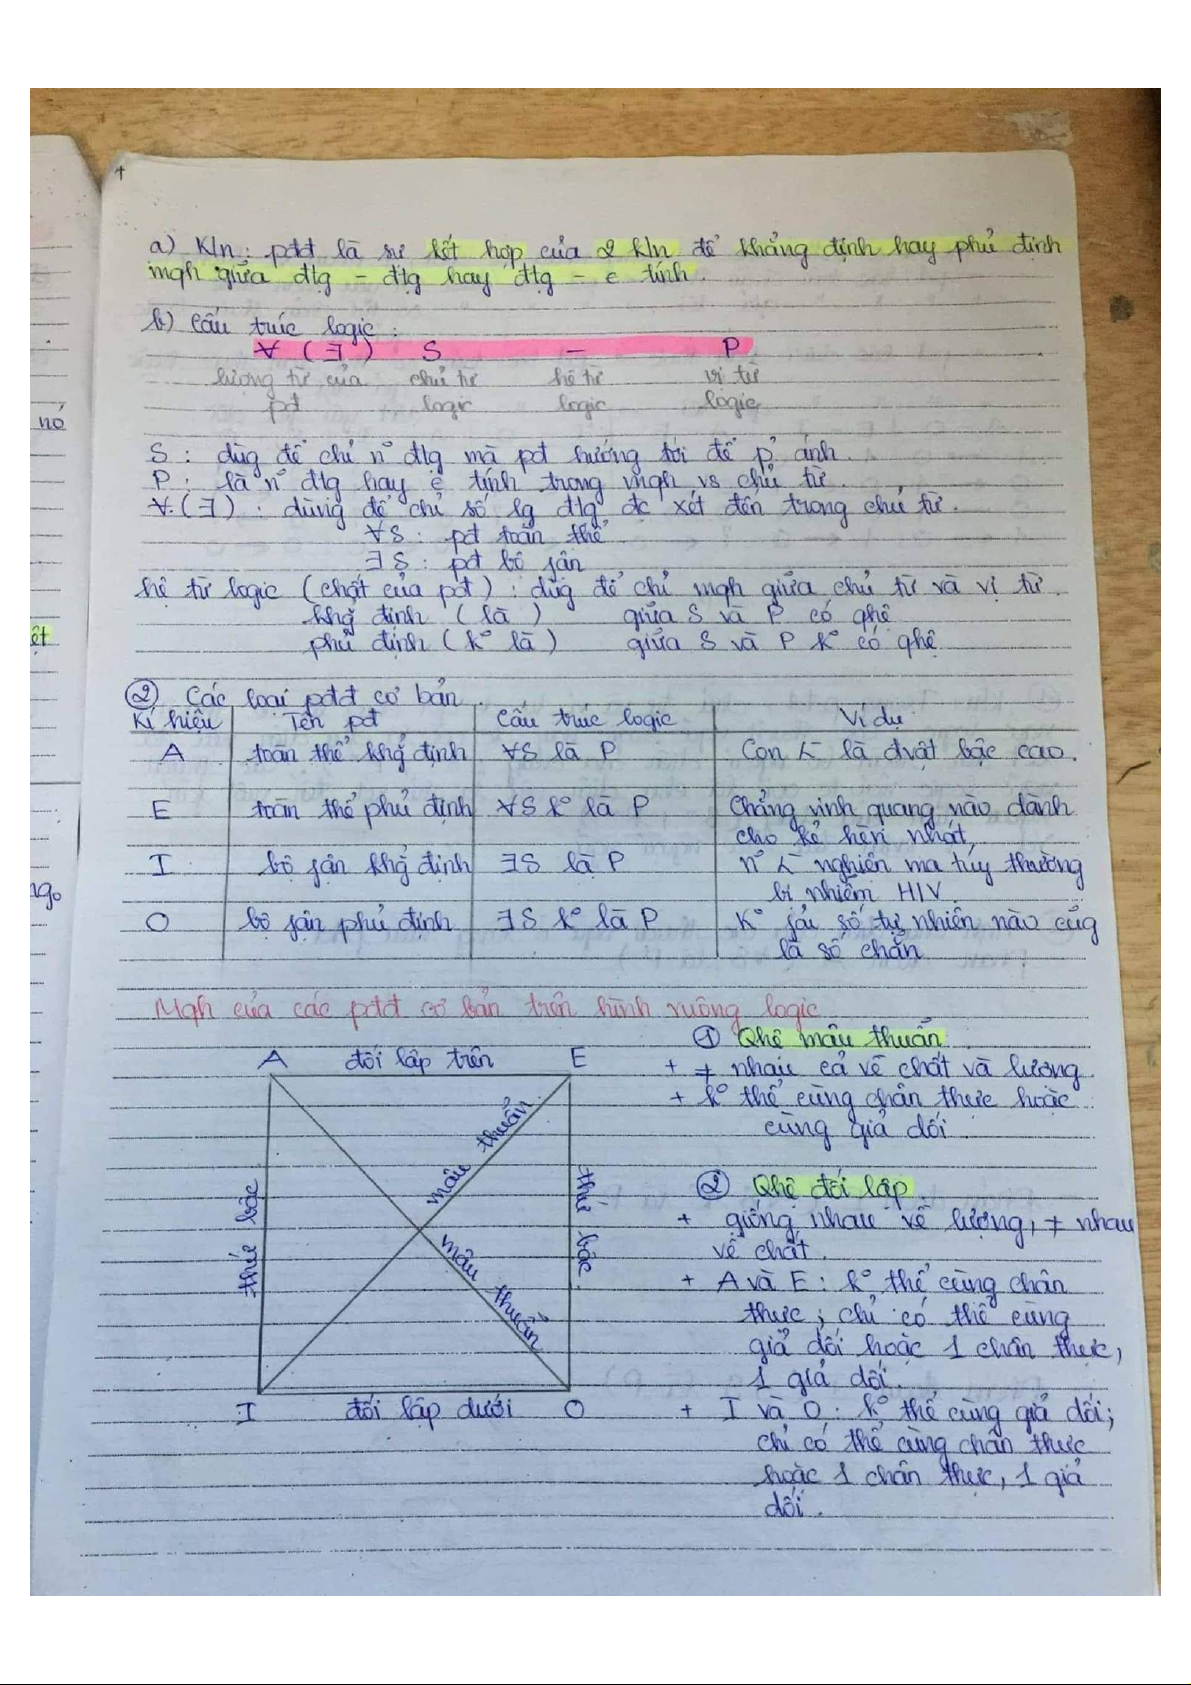 a) K/n: pđđ là sự kết hợp của 2 k/n để khẳng định hay phủ định
mqh giữa đtg - đtg hay đtg - c tính.
b) Cấu trúc logic:
∀ (∃) S — P
lượng từ của chủ từ hệ từ vị từ
pđ logic logic logic
nó
S: dùg để chỉ n~ đtg mà pđ hướng tới để p ánh.
P: là n~ đtg hay c tính trong mqh vs chủ từ.
∀.(∃): dùng để chỉ số lg đtg đc xét đến trong chủ từ.
∀S: pđ toàn thể
∃S: pđ bộ fận
hệ từ logic (chất của pđ): dùg để chỉ mqh giữa chủ từ và vị từ.
khg̉ định (là) giữa S và P có qhệ
phủ định (k° là) giữa S và P k° có qhệ
② Các loại pđđ cơ bản
Kí hiệu Tên pđ Cấu trúc logic Ví dụ
A toàn thể khg̉ định ∀S là P Con < là đvật bậc cao.
E toàn thể phủ định ∀S k° là P Chẳng vinh quang nào dành
cho kẻ hèn nhát,
I bộ fận khg̉ định ∃S là P n~ < nghiện ma túy thường
bị nhiễm HIV
O bộ fận phủ định ∃S k° là P K° fải số tự nhiên nào cũg
là số chẵn
Mqh của các pđđ cơ bản trên hình vuông logic
① Qhệ mâu thuẫn
A đối lập trên E
+ ≠ nhau cả về chất và lượng.
+ k° thể cùng chân thực hoặc
cùng giả dối.
mâu thuẫn
② Qhệ đối lập
thứ bậc
thứ bậc
+ giống nhau về lượng, ≠ nhau
về chất.
mâu thuẫn
+ A và E: k° thể cùng chân
thực; chỉ có thể cùng
giả dối hoặc 1 chân thực,
1 giả dối.
I đối lập dưới O
+ I và O: k° thể cùng giả dối;
chỉ có thể cùng chân thực
hoặc 1 chân thực, 1 giả
dối.